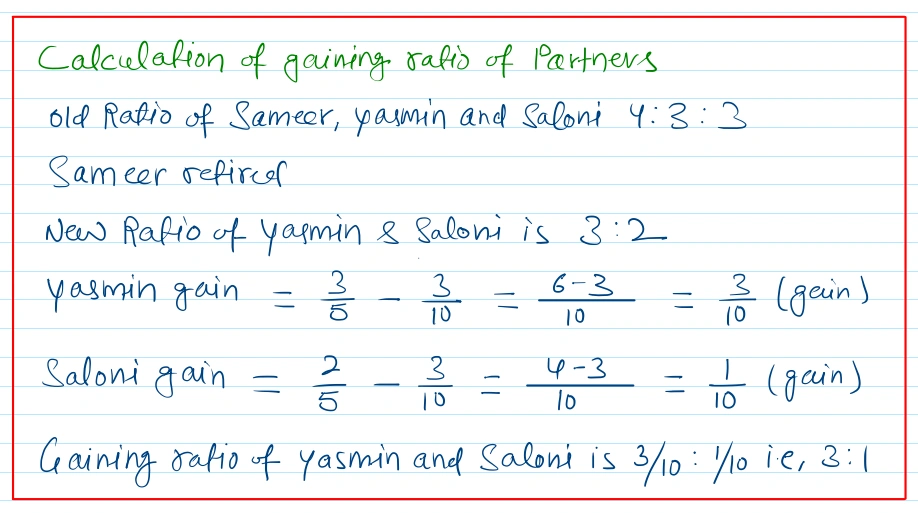 Calculation of gaining ratio of Partners
Old Ratio of Sameer, Yasmin and Saloni 4:3:3
Sameer retired
New Ratio of Yasmin & Saloni is 3:2
Yasmin gain = 3/5 - 3/10 = 6-3/10 = 3/10 (gain)
Saloni gain = 2/5 - 3/10 = 4-3/10 = 1/10 (gain)
Gaining ratio of Yasmin and Saloni is 3/10 : 1/10 i.e, 3:1